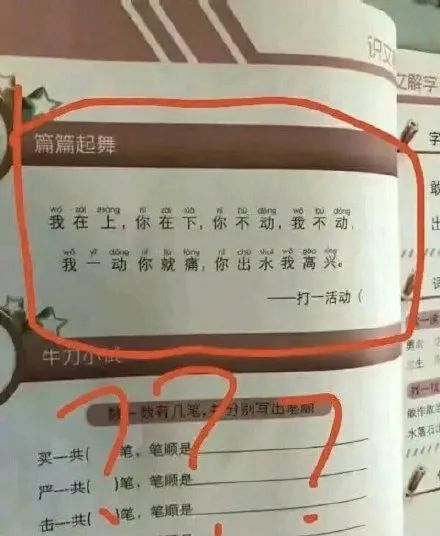 识文
篇篇起舞
wǒ zài shàng nǐ zài xià nǐ bú dòng wǒ bú dòng
我在上,你在下,你不动,我不动,
wǒ yí dòng nǐ jiù tòng nǐ chū shuǐ wǒ gāo xìng
我一动你就痛,你出水我高兴。
——打一活动(
牛刀小试
数一数有几笔,并分别写出笔顺
买一共( )笔,笔顺是
严一共( )笔,笔顺是
击一共( )笔,笔顺是
文解字
字
敢
出
水落石出